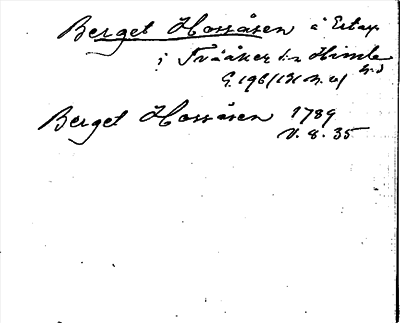 Berget Hossåsen å Ertap
i Tvååker s:n Himle
hd
G. 196
Berget Hossåsen 1789
V. 8. 35